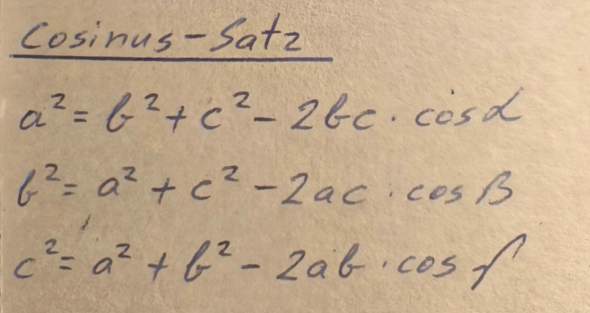 Cosinus-Satz
a² = b² + c² - 2bc · cos α
b² = a² + c² - 2ac · cos β
c² = a² + b² - 2ab · cos γ